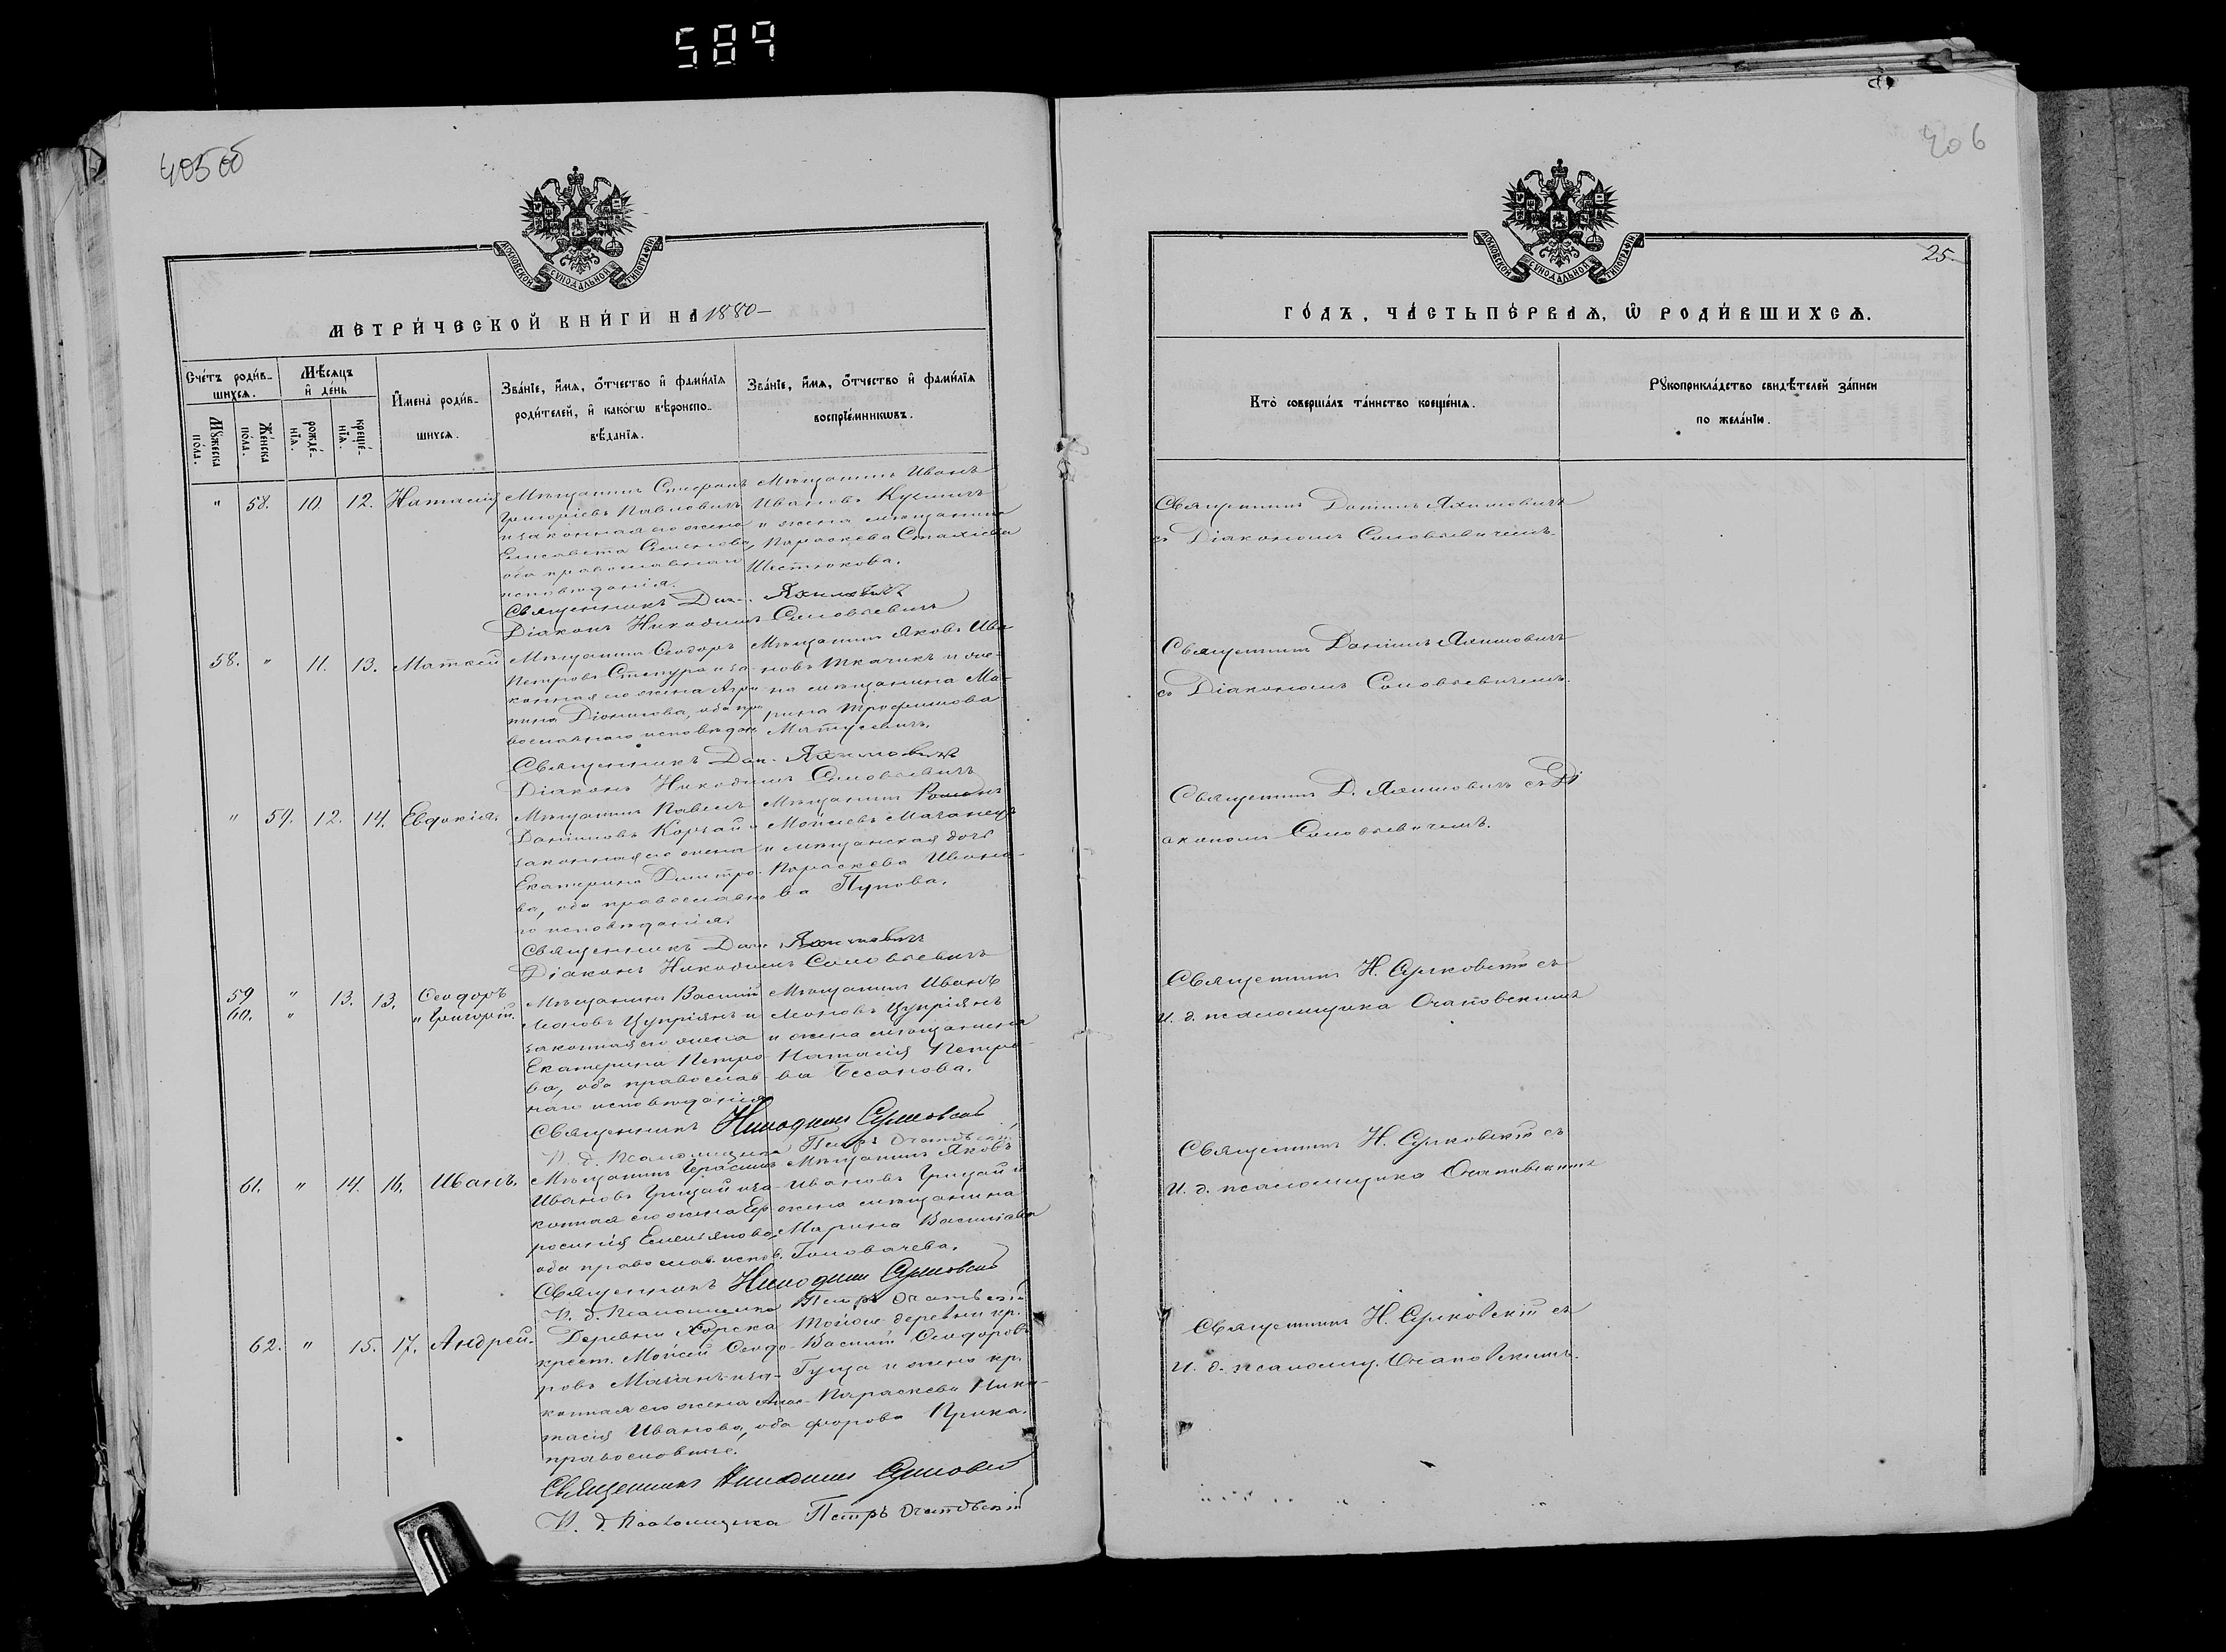 589
405 об
МОСКОВСКОЙ СУНОДАЛЬНОЙ ТИПОГРАФІИ
МЕТРИ́ЧЕСКОЙ КНИ́ГИ НА 1880
Сче́тъ роди́в-
шихсѧ.
Мѣ́сѧцъ
и҆ де́нь
Мꙋ́жеска
по́ла.
Же́нска
по́ла.
рожде́-
нїѧ.
креще́-
нїѧ.
И҆мена̀ роди́в-
шихсѧ.
Зва́нїе, и҆́мѧ, ѻ҆́тчество и҆ фами́лїѧ
роди́телей, и҆ како́гѡ вѣроиспо-
вѣ́данїѧ.
Зва́нїе, и҆́мѧ, ѻ҆́тчество и҆ фами́лїѧ
воспрїе́мникѡвъ.
" 58. 10. 12. Наталія
Мѣщанинъ Стефанъ
Григоріевъ Павловичъ
и законная его жена
Елисавета Семенова,
оба православнаго
исповѣданія.
Мѣщанинъ Иванъ
Ивановъ
и жена мѣщанина
Параскева
Шестюкова.
Священникъ Дан. Яхимовичъ
Діаконъ Никодимъ Соловьевичъ
58. " 11. 13. Матѳей
Мѣщанинъ Ѳеодоръ
Петровъ и за-
конная его жена Агри-
пина Діонисова, оба пра-
вославнаго исповѣдан.
Мѣщанинъ Яковъ Ива-
новъ Ткачикъ и же-
на мѣщанина Ма-
рина Трофимова
Матусевичъ.
Священникъ Дан. Яхимовичъ
Діаконъ Никодимъ Соловьевичъ
" 59. 12. 14. Евдокія.
Мѣщанинъ Павелъ
Даниловъ и
законная его жена
Екатерина Димитро-
ва, оба православна-
го исповѣданія.
Мѣщанинъ Романъ
Мойсеевъ
и мѣщанская дочь
Параскева Ивано-
ва Пупова.
Священникъ Дан. Яхимовичъ
Діаконъ Никодимъ Соловьевичъ
59 " 13. 13. Ѳеодоръ
60. " " Григорій.
Мѣщанинъ Василій
Леоновъ Цупріянъ и
законная его жена
Екатерина Петро-
ва, оба православ-
наго исповѣданія
Мѣщанинъ Иванъ
Леоновъ Цупріянъ
и жена мѣщанина
Наталія Петро-
ва
Священникъ Никодимъ
И. д. Псаломщика Петръ
61. " 14. 16. Иванъ.
Мѣщанинъ Герасимъ
Ивановъ Грицай и за-
конная его жена Еф-
росинія Емельянова,
оба православ. испов.
Мѣщанинъ Яковъ
Ивановъ Грицай и
жена мѣщанина
Марина Василіева
Головачева.
Священникъ Никодимъ
И. д. Псаломщика Петръ
62. " 15. 17. Андрей.
Деревни Хорска
крест. Мойсей Ѳеодо-
ровъ и за-
конная его жена Анас-
тасія Иванова, оба
православные.
Тойже деревни кр.
Василій Ѳеодоровъ
Гуща и жена кр.
Параскева Ники-
форова
Священникъ Никодимъ
И. д. Псаломщика Петръ
406
25
МОСКОВСКОЙ СУНОДАЛЬНОЙ ТИПОГРАФІИ
ГО́ДЪ, ЧА́СТЬ ПЕ́РВАѦ, Ѡ҆ РОДИ́ВШИХСѦ.
Кто̀ соверша́лъ та́инство креще́нїѧ.
Рꙋкоприкла́дство свидѣ́телей за́писи
по жела́нїю.
Священникъ Даніилъ Яхимовичъ
съ Діакономъ Соловьевичемъ.
Священникъ Даніилъ Яхимовичъ
съ Діакономъ Соловьевичемъ.
Священникъ Д. Яхимовичъ съ Ді
акономъ Соловьевичемъ.
Священникъ Н. съ
и. д. псаломщика
Священникъ Н. съ
и. д. псаломщика
Священникъ Н. съ
и. д. псаломщ.